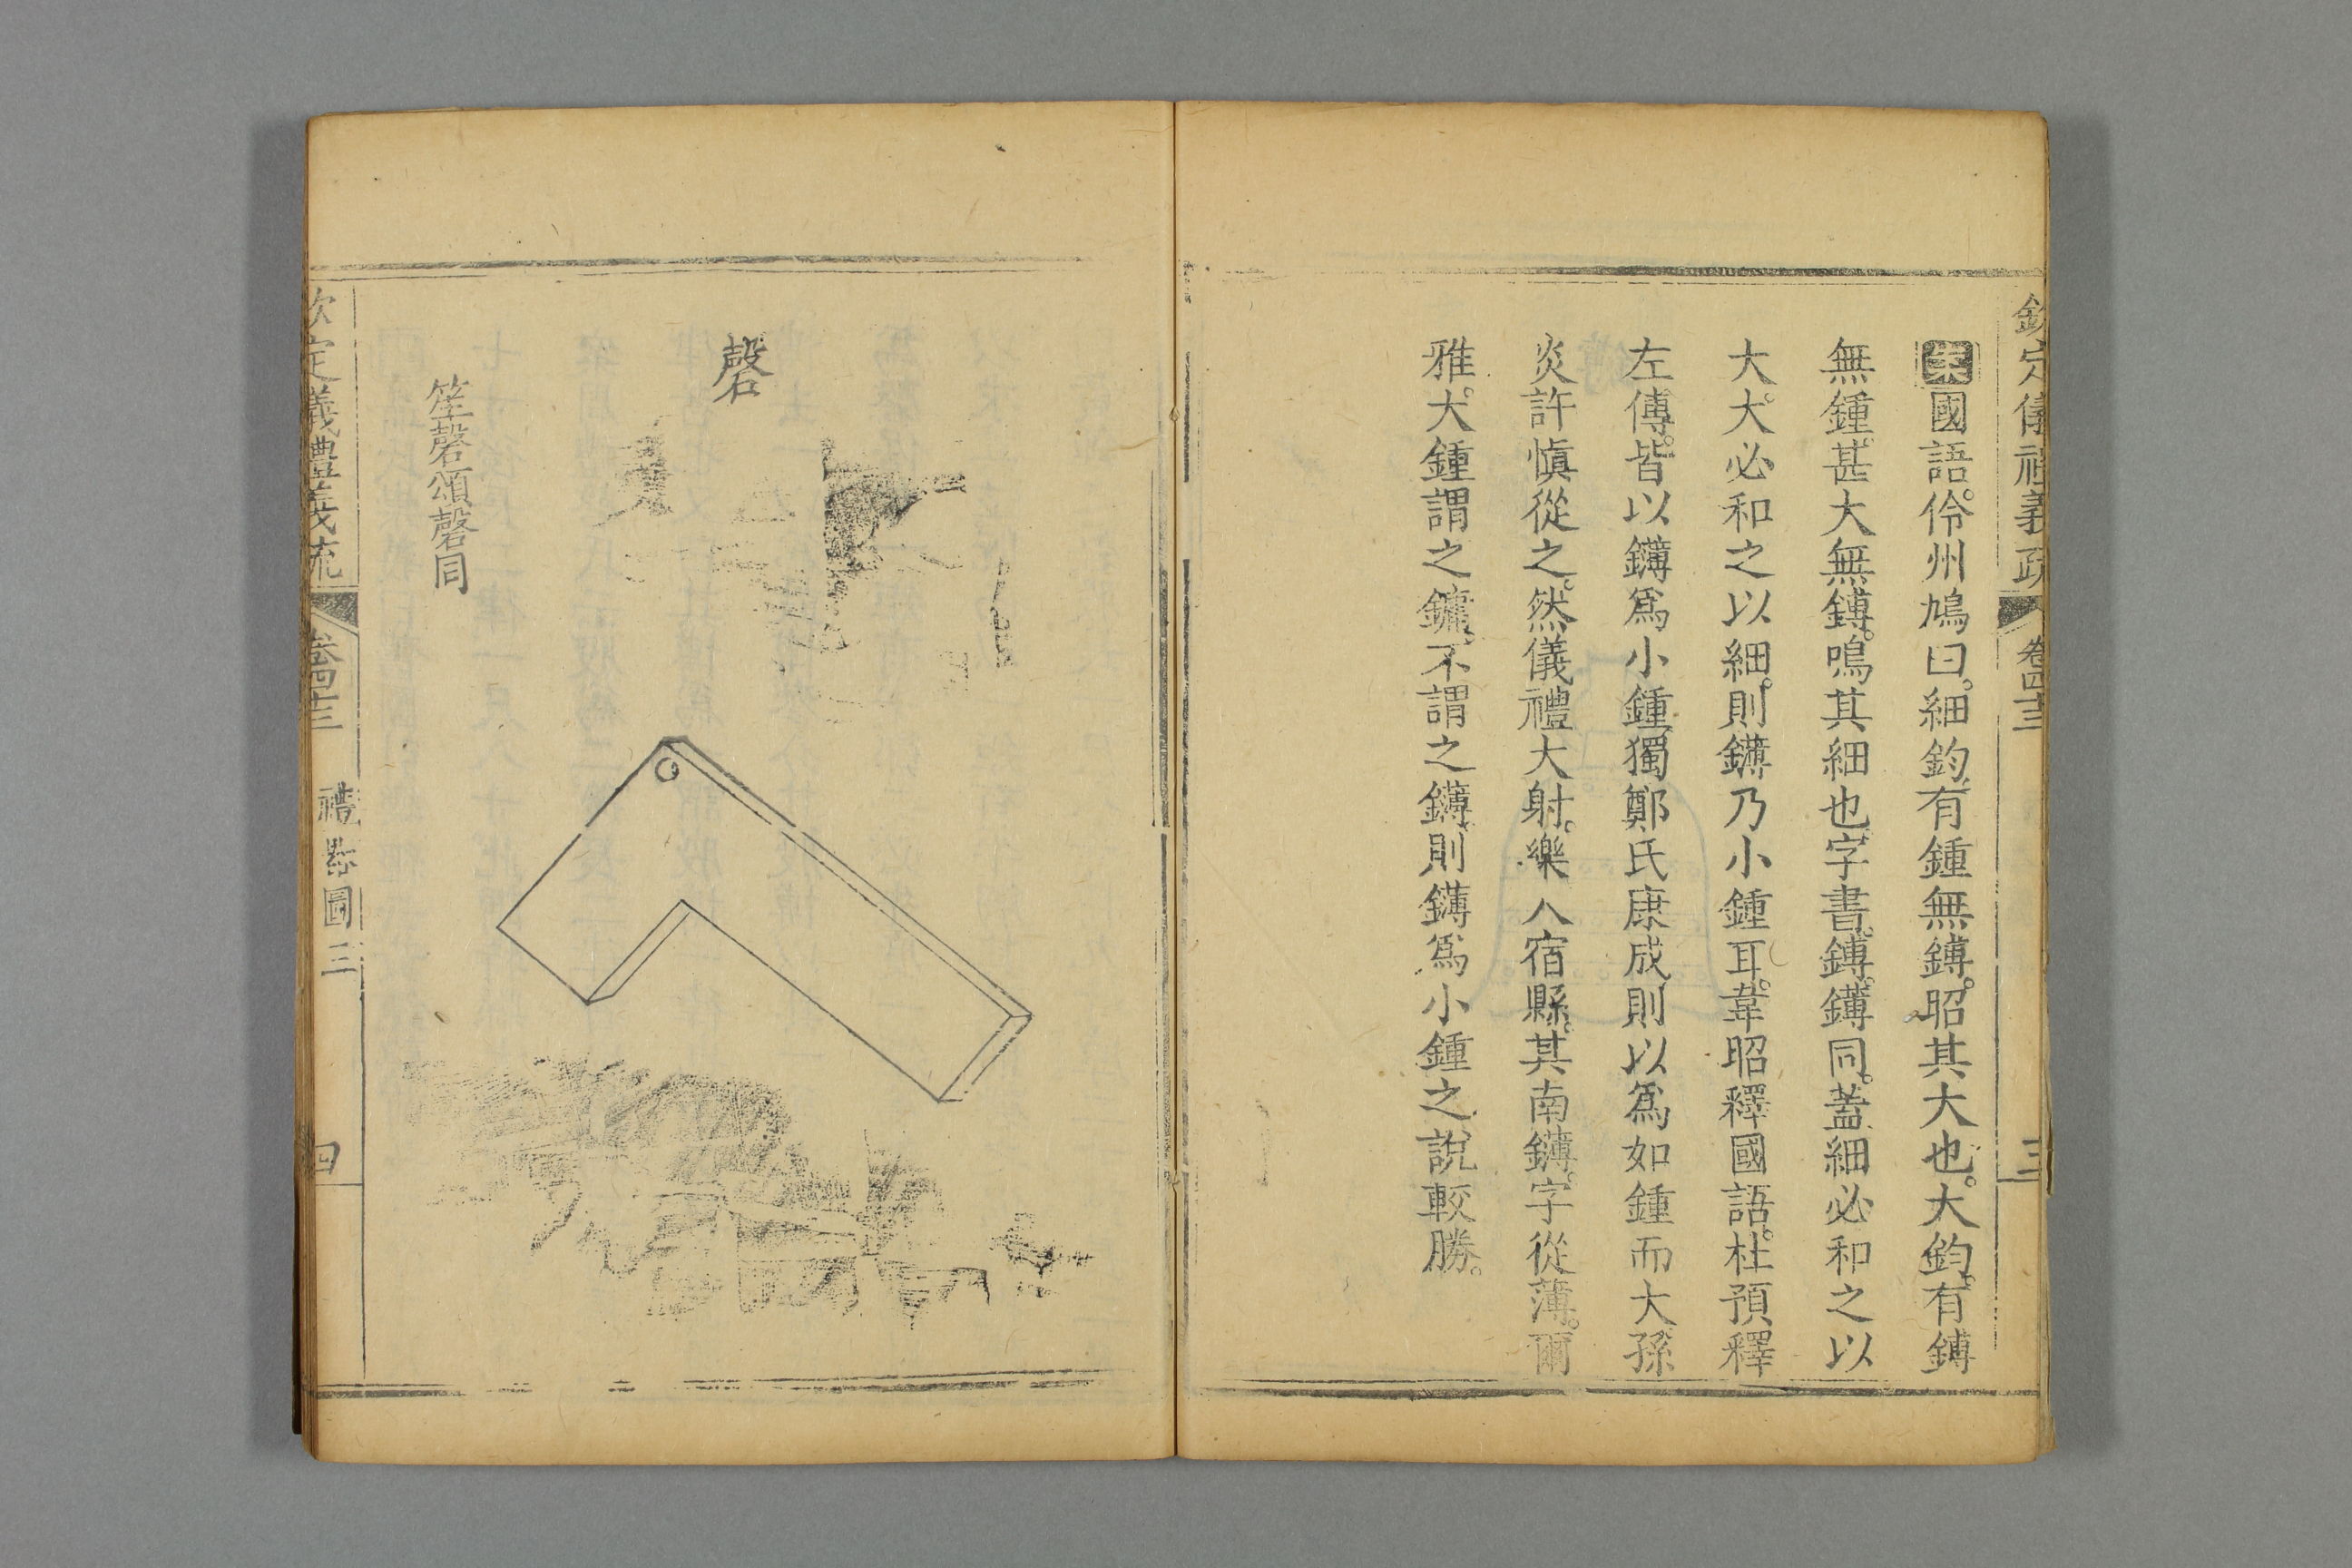 欽定儀禮義疏 卷四十三 三
案國語。伶州鳩曰。細鈞有鍾無鎛。昭其大也。大鈞。有鎛
無鍾。甚大無鎛。鳴其細也。字書。鎛。鑮同。蓋細必和之以
大。大必和之以細。則鑮乃小鍾耳。韋昭釋國語。杜預釋
左傳。皆以鑮爲小鍾。獨鄭氏康成則以爲如鍾而大。孫
炎許愼從之。然儀禮大射。樂人宿縣。其南鑮。字從薄。爾
雅。大鍾謂之鏞。不謂之鑮。則鑮爲小鍾之說較勝。
磬
笙磬頌磬同
欽定儀禮義疏 卷四十三 禮器圖三 四